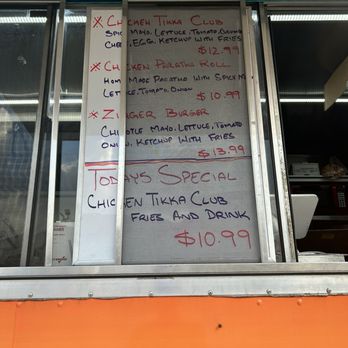 * CHICKEN TIKKA CLUB
SPICY MAYO, LETTUCE, TOMATO,
CHEESE, EGG, KETCHUP WITH FRIES
$12.99
* CHICKEN PARATHA ROLL
HOME MADE PARATHA WITH SPICY MAYO
LETTUCE, TOMATO, ONION
$10.99
* ZINGER BURGER
CHIPOTLE MAYO, LETTUCE, TOMATO
ONION, KETCHUP WITH FRIES
$13.99
TODAYS SPECIAL
CHICKEN TIKKA CLUB
FRIES AND DRINK
$10.99